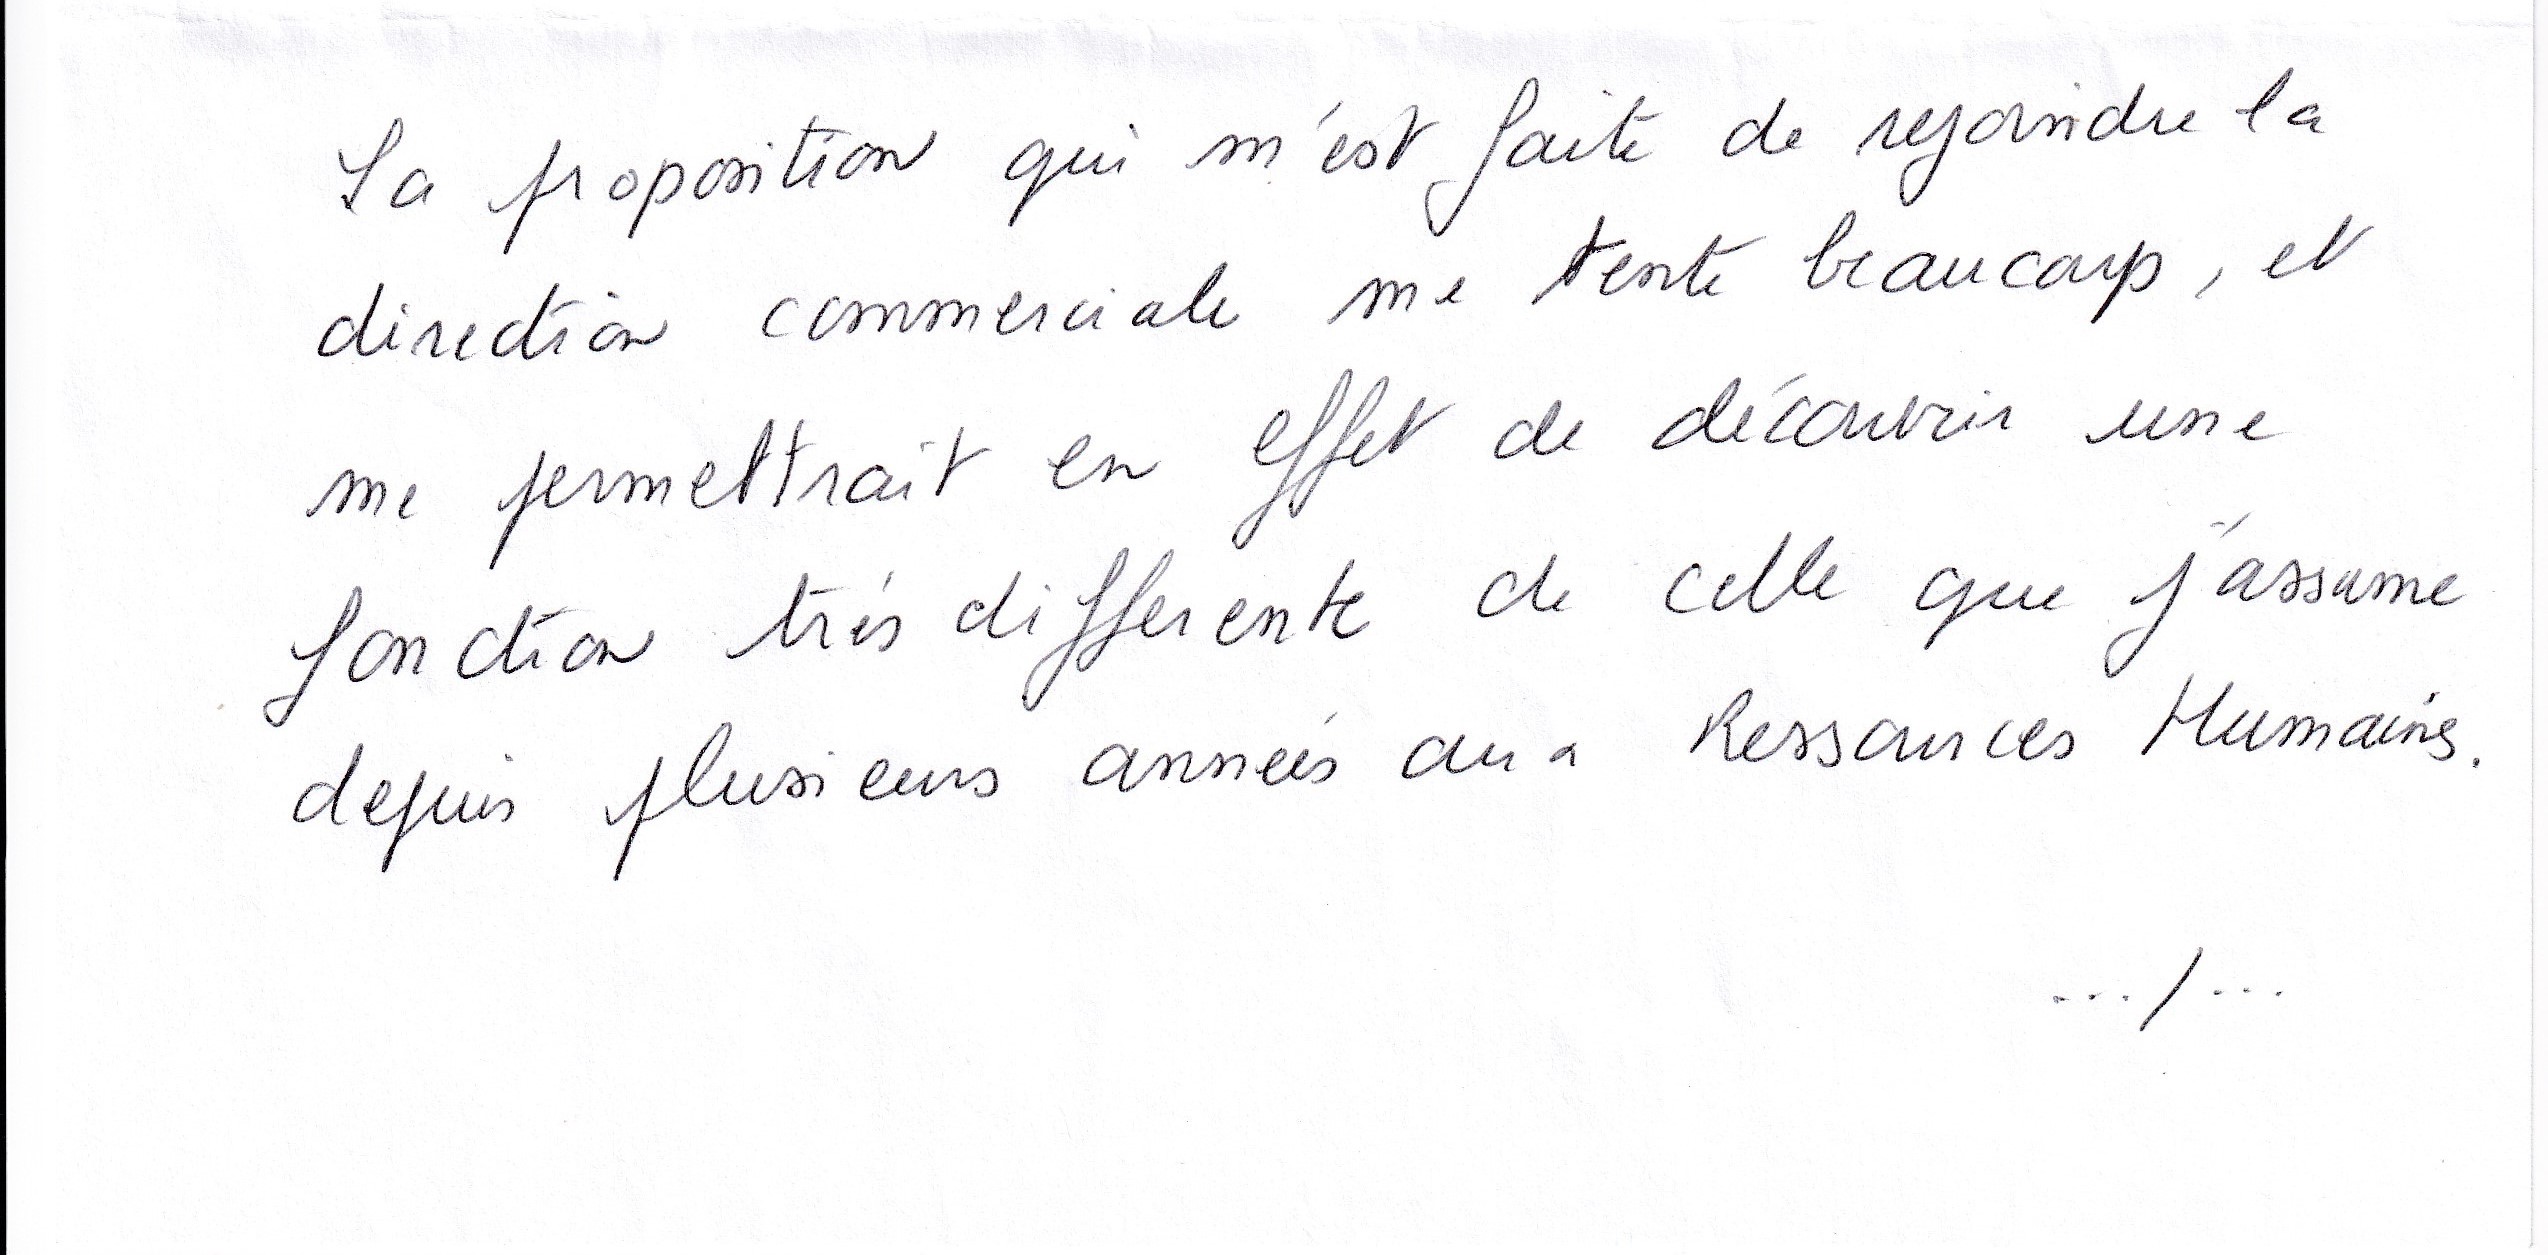 La proposition qui m'est faite de rejoindre la
direction commerciale me tente beaucoup, et
me permettrait en effet de découvrir une
fonction très différente de celle que j'assume
depuis plusieurs années aux Ressources Humaines.
.../...